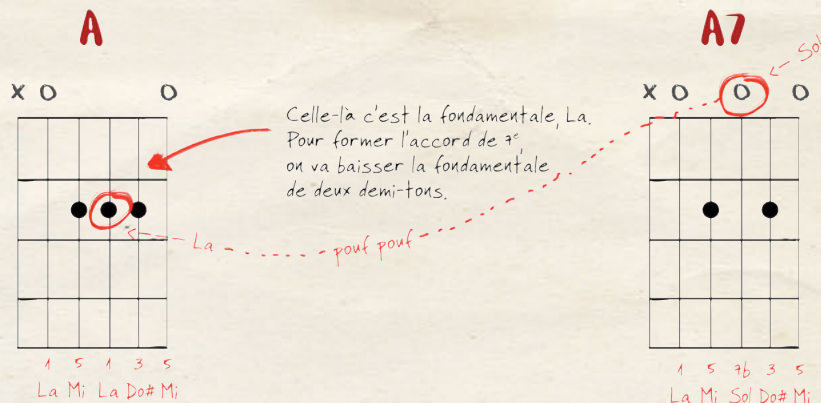 A
A7
Sol
X O O
X O O O
Celle-là c'est la fondamentale, La.
Pour former l'accord de 7e,
on va baisser la fondamentale
de deux demi-tons.
La
pouf pouf
1 5 1 3 5
La Mi La Do# Mi
1 5 7b 3 5
La Mi Sol Do# Mi